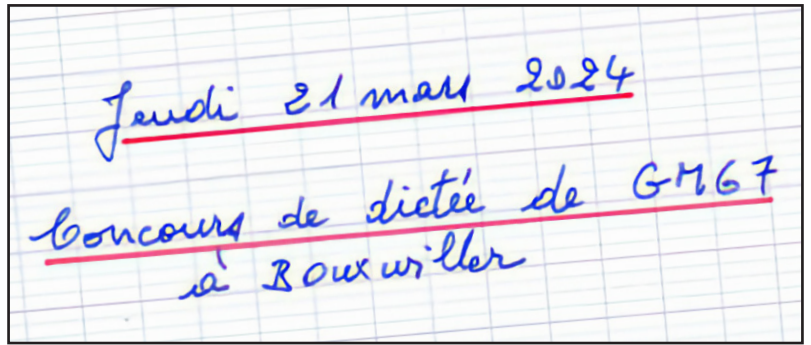 Jeudi 21 mars 2024
Concours de dictée de GM67
à Bouxwiller